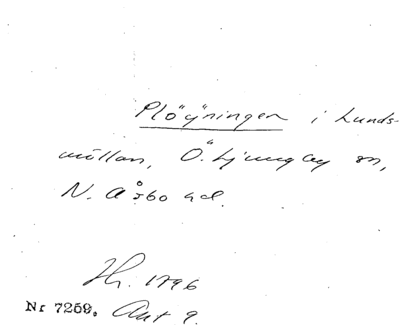 Plöÿningen i Lunds-
möllan, Ö. Ljungby sn,
N. Åsbo hd.
Hr. 1796
Nr 7259. Akt 9.